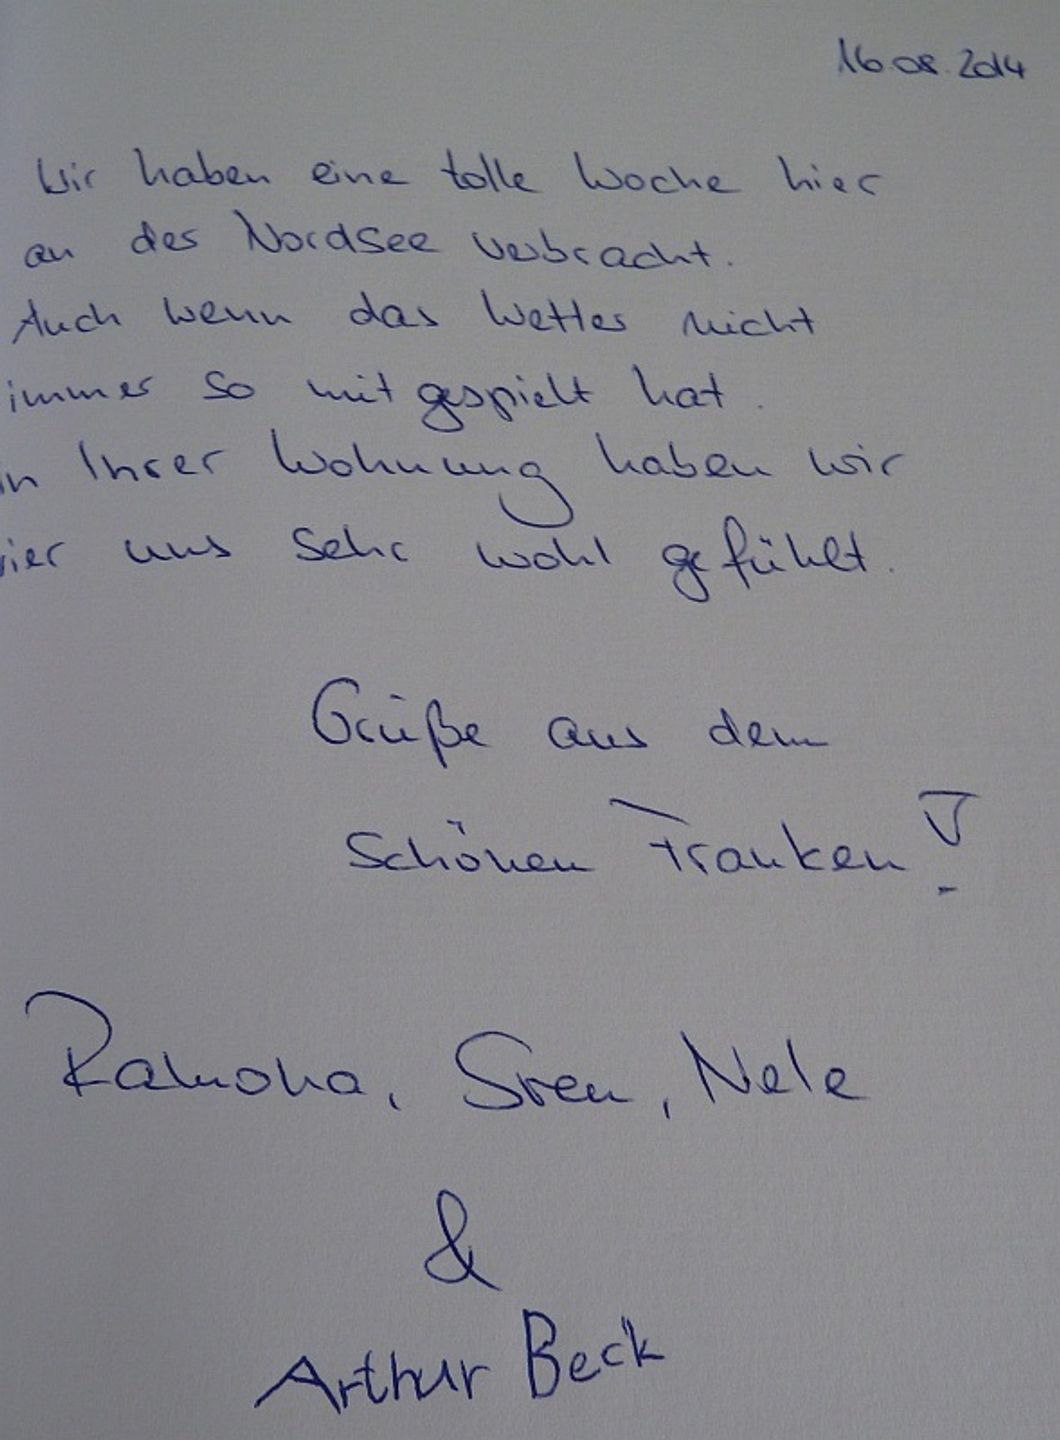 16.08.2014
Wir haben eine tolle Woche hier
an der Nordsee verbracht.
Auch wenn das Wetter nicht
immer so mit gespielt hat.
in Ihrer Wohnung haben wir
vier uns sehr wohl gefühlt.
Grüße aus dem
schönen Franken!
Ramona, Sven, Nele
&
Arthur Beck